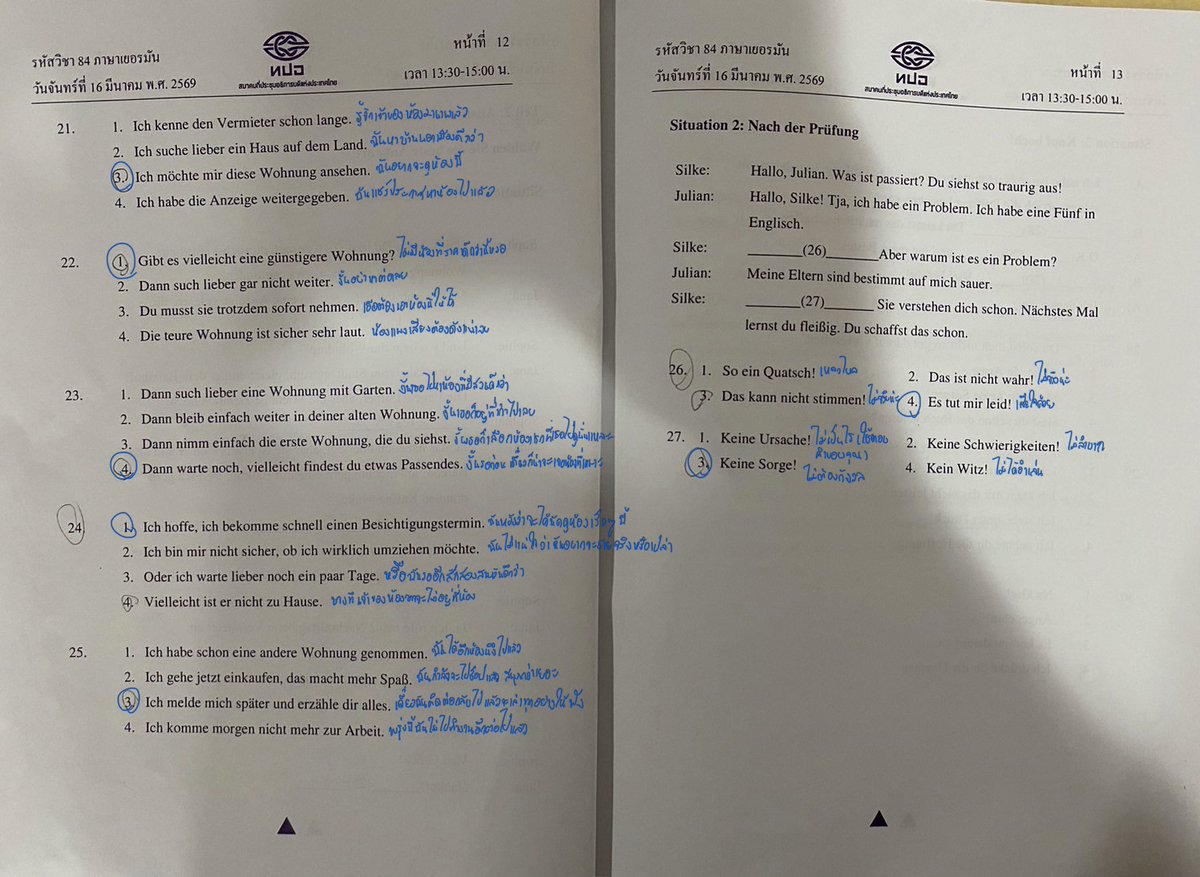 รหัสวิชา 84 ภาษาเยอรมัน
วันจันทร์ที่ 16 มีนาคม พ.ศ. 2569
ทปอ
สมาคมที่ประชุมอธิการบดีแห่งประเทศไทย
หน้าที่ 12
เวลา 13:30-15:00 น.
21. 1. Ich kenne den Vermieter schon lange. รู้จักเจ้าของห้อง
2. Ich suche lieber ein Haus auf dem Land.
3. Ich möchte mir diese Wohnung ansehen. ฉันอยากจะดูห้องนี้
4. Ich habe die Anzeige weitergegeben. ฉันแชร์ประกาศหาห้องไปแล้ว
22. 1. Gibt es vielleicht eine günstigere Wohnung? ไม่มีห้องที่ราคาดีกว่านี้หรอ
2. Dann such lieber gar nicht weiter. งั้นอย่าหาต่อเลย
3. Du musst sie trotzdem sofort nehmen. เธอต้องเอาห้องนี้ให้ได้
4. Die teure Wohnung ist sicher sehr laut. ห้องแพงเสียงต้องดังแน่เลย
23. 1. Dann such lieber eine Wohnung mit Garten. งั้นเธอไปหาห้องที่มีสวนดีกว่า
2. Dann bleib einfach weiter in deiner alten Wohnung. งั้นเธอก็อยู่ที่เก่าไปเลย
3. Dann nimm einfach die erste Wohnung, die du siehst. งั้นเธอก็เลือกห้องแรกที่เธอไปดูนั่นแหละ
4. Dann warte noch, vielleicht findest du etwas Passendes. งั้นรอก่อน เดี๋ยวก็น่าจะเจอห้องที่เหมาะ
24 1. Ich hoffe, ich bekomme schnell einen Besichtigungstermin. ฉันหวังว่าจะได้นัดดูห้องเร็วๆ นี้
2. Ich bin mir nicht sicher, ob ich wirklich umziehen möchte. ฉันไม่แน่ใจว่าฉันอยากจะย้ายจริงหรือเปล่า
3. Oder ich warte lieber noch ein paar Tage. หรือฉันรออีกสักสองสามวันดีกว่า
4. Vielleicht ist er nicht zu Hause. บางทีเจ้าของห้องอาจจะไม่อยู่ที่ห้อง
25. 1. Ich habe schon eine andere Wohnung genommen. ฉันได้อีกห้องนึงไปแล้ว
2. Ich gehe jetzt einkaufen, das macht mehr Spaß. ฉันกำลังจะไปช็อปแล้ว สนุกกว่าเยอะ
3. Ich melde mich später und erzähle dir alles. เดี๋ยวฉันติดต่อกลับไป แล้วจะเล่าทุกอย่างให้ฟัง
4. Ich komme morgen nicht mehr zur Arbeit. พรุ่งนี้ฉันไม่ไปทำงานอีกต่อไปแล้ว
รหัสวิชา 84 ภาษาเยอรมัน
วันจันทร์ที่ 16 มีนาคม พ.ศ. 2569
ทปอ
สมาคมที่ประชุมอธิการบดีแห่งประเทศไทย
หน้าที่ 13
เวลา 13:30-15:00 น.
Situation 2: Nach der Prüfung
Silke: Hallo, Julian. Was ist passiert? Du siehst so traurig aus!
Julian: Hallo, Silke! Tja, ich habe ein Problem. Ich habe eine Fünf in
Englisch.
Silke: _______(26)_______ Aber warum ist es ein Problem?
Julian: Meine Eltern sind bestimmt auf mich sauer.
Silke: _______(27)_______ Sie verstehen dich schon. Nächstes Mal
lernst du fleißig. Du schaffst das schon.
26. 1. So ein Quatsch! เหลวไหล 2. Das ist nicht wahr! ไม่จริงน่ะ
3. Das kann nicht stimmen! ไม่จริงน่ะ 4. Es tut mir leid! เสียใจด้วย
27. 1. Keine Ursache! ไม่เป็นไร (ใช้ตอบ 2. Keine Schwierigkeiten! ไม่ลำบาก
คำขอบคุณ)
3. Keine Sorge! ไม่ต้องกังวล 4. Kein Witz! ไม่ได้ล้อเล่น